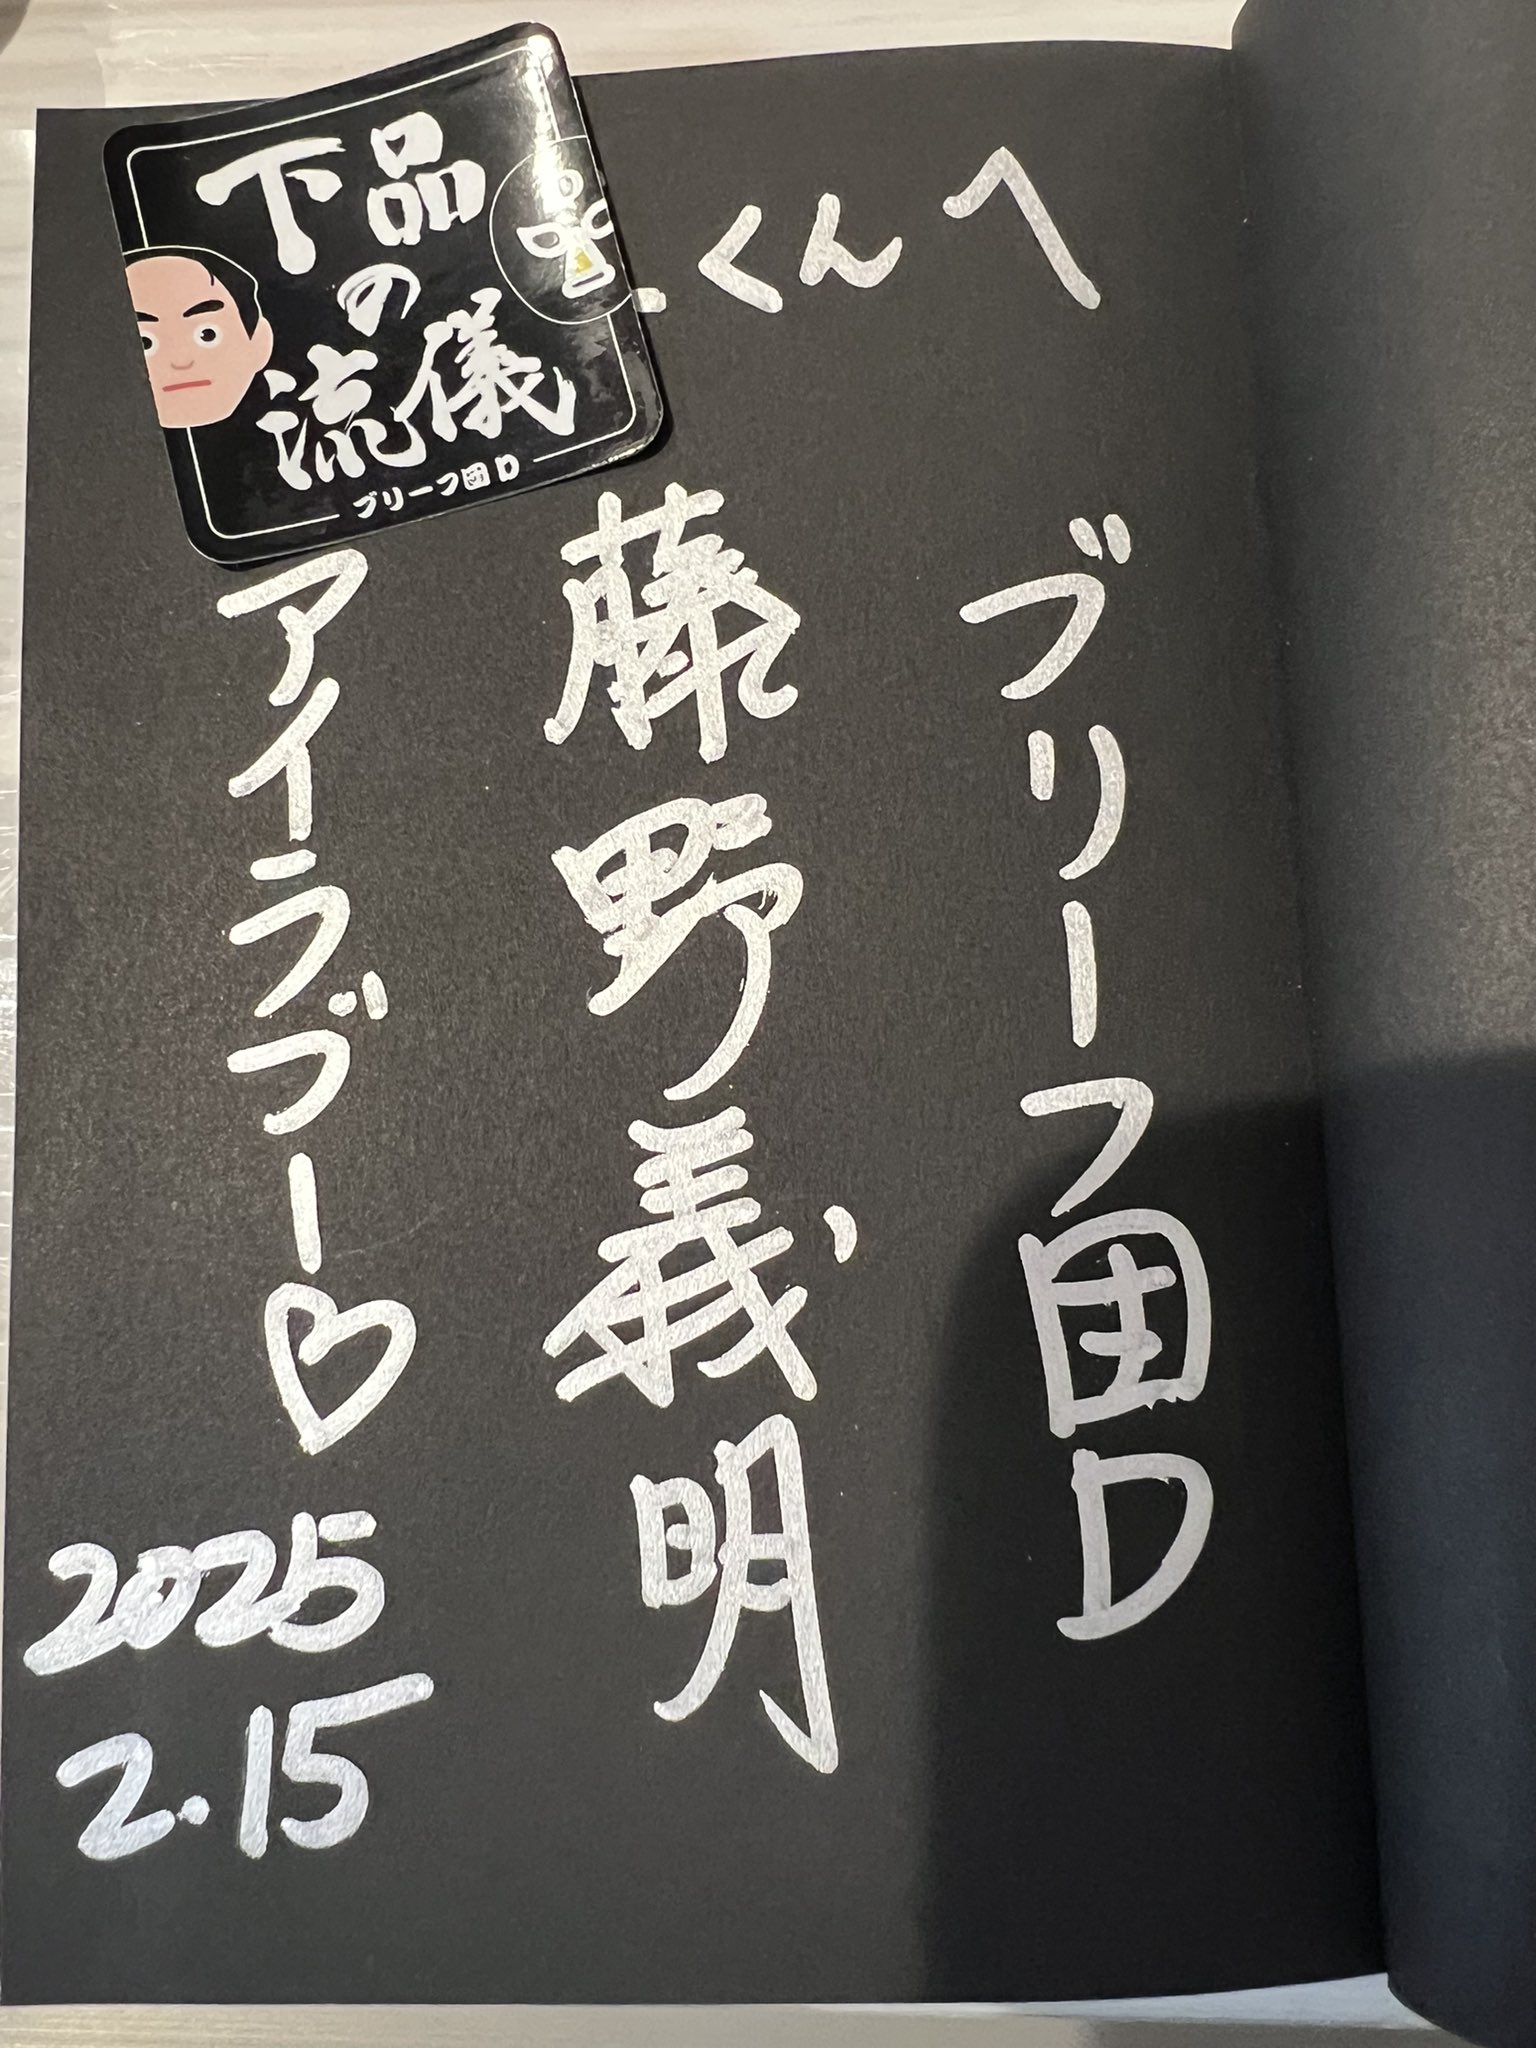 下品
の
流儀
ブリーフ団D
くんへ
ブリーフ団D
藤野義明
アイラブー♡
2025
2.15